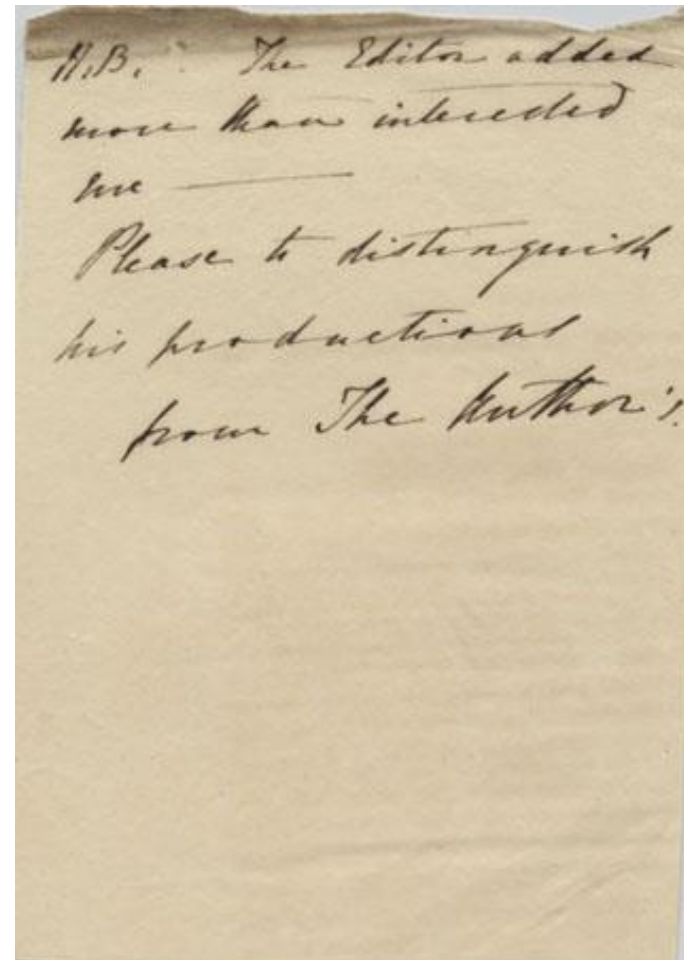 N.B. The Editor added
more than interested
me —
Please to distinguish
his productions
from The Author's.